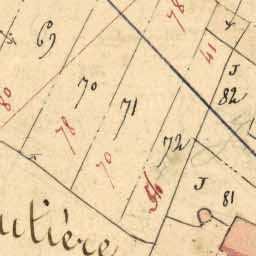 69
78
41
J
82
70
71
80
78
72
70
J
81
56
utière